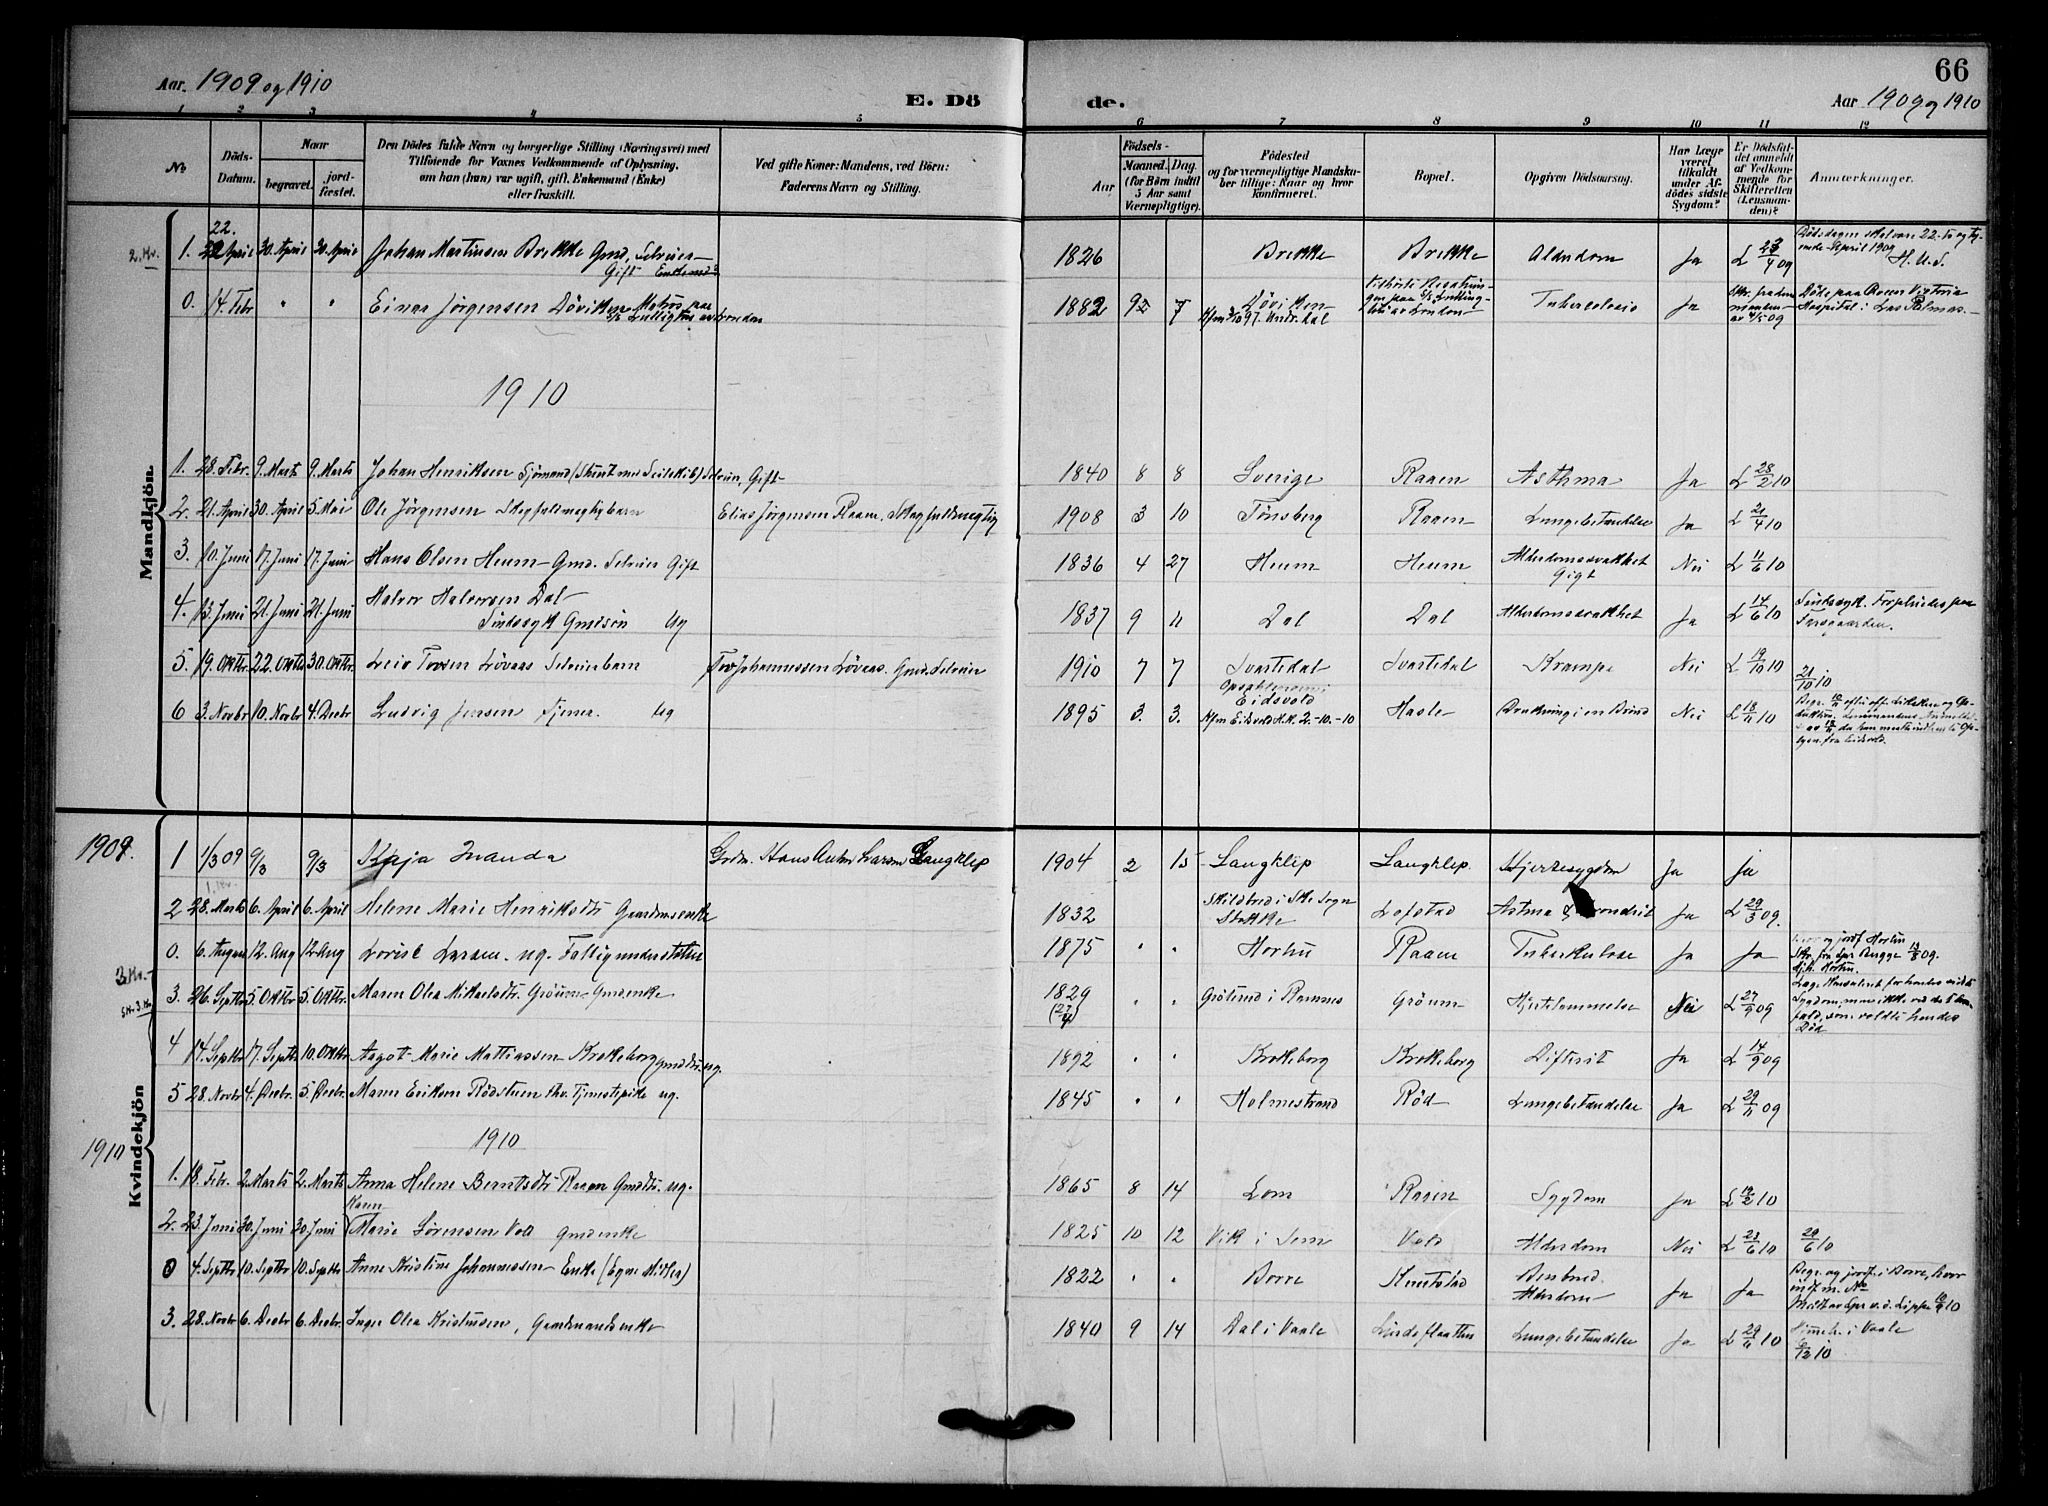 66
Aar. 1909 og 1910
E. Dö
de.
Aar 1909 og 1910
1 2 3 4 5 6 7 8 9 10 11 12
No
Döds-Datum.
Naar
begravet.
jordfæstet.
Den Dödes fulde Navn og borgerlige Stilling (Næringsvei) med
Tilföiende for Voxnes Vedkommende af Oplysning,
om han (hun) var ugift, gift, Enkemand (Enke)
eller fraskilt.
Ved gifte Koner: Mandens, ved Börn:
Faderens Navn og Stilling.
Aar
Födsels-
Maaned. Dag.
(for Börn indtil
5 Aar samt
Værnepligtige).
Födested
og for værnepligtige Mandsku-
ber tillige: Naar og hvor
konfirmeret.
Bopæl.
Opgiven Dödsaarsag.
Har Læge
været
tilkaldt
under Af-
dödes sidste
Sygdom?
Er Dödsfal-
det anmeldt
af Vedkom-
mende for
Skifteretten
(Lensman-
den)?
Anmærkninger.
Mandkjön.
2. Kv.
1. 22. April 30. April 30. April Johan Martinsen Brekke Gmd. Selveier 1826 Brekke Brekke Alderdom Ja L 23/4 09
Gift Enkemd
Dödsdagen skal være 22-to og tyvende April 1909
H. U. S.
0. 14. Febr " " Einar Jörgensen Döviken Matros paa 1882 Döviken Tuberculosis Ja
S/S Lullington av London
Kfm 3/10 97. Undr. Dal
Döde paa Queen Victoria
Hospital i Las Palmas.
1910
1. 28. Febr. 9. Marts 9. Marts Johan Henriksen Sjömand Selveier, Gift 1840 8 8 Sverige Raaen Asthma Ja L 28/2 10
2. 21. April 30. April 5. Mai Ole Jörgensen Skogfuldmægtigbarn Elias Jörgensen Raaen, Skogfuldmægtig 1908 3 10 Tönsberg Raaen Lungebetændelse Ja L 21/4 10
3. 10. Juni 17. Juni 17. Juni Hans Olsen Heum Gmd. Selveier Gift 1836 4 27 Heum Heum Alderdomssvakhet Nei L 11/6 10
Gigt
4. 13. Juni 21. Juni 21. Juni Halvor Halvorsen Dal 1837 9 11 Dal Dal Alderdomssvakhet Ja L 14/6 10
Sindssyk Gmdsön Ug
Sindssyk. Forpleiedes paa
Farsgaarden.
5. 19. Oktbr. 22. Oktbr 30. Oktbr Leiv Torsen Lövaas Selveierbarn Tor Johannessen Lövaas. Gmd. Selveier 1910 7 7 Svartedal Svartedal Krampe Nei L 19/10 10
21/10 10
6 3. Novbr 10. Novbr 4. Decbr Ludvig Jensen Tjener Ug 1895 3. 3. Eidsvold Hasle Drukning i en Brönd Nei L 18/11 10
Kfm Eidsvold H.K. 2.-10.-10
1909.
Kvindekjön
1 1/3 09 9/3 9/3 Kaja Wanda Grdm. Hans Anton Larsen Langklep 1904 2 15 Langklep Langklep. Hjertesygdom Ja Ja
2 28. Marts 6. April 6. April Helene Marie Henriksdtr Gaardmsenke 1832 Lofstad Astma & Ja L 29/3 09.
0. 6. August 12. Aug 12. Aug Lovise Larsen. ug. Fattigunderstöttet 1875 " " Horten Raaen Tuberkulose Ja Ja
og jordf Horten
3 Kv.
3. 26. Septbr 5. Oktbr 5. Oktbr Maren Olea Mikaelsdtr. Gröum Gmdenke 1829 " " Grötsrud i Ramnes Gröum Hjertelammelse Nei L 27/9 09
(27/4)
4 14. Septbr 17. Septbr 10. Oktbr Aagot Marie Mathiassen Krokeborg Gmdtr. ug. 1892 " " Krokeborg Krokeborg Difterit Ja L 14/9 09
5 28. Novbr 4. Decbr. 5. Decbr. Maren Eriksen Rödstuen fhv. Tjenestepike ug. 1845 " " Holmestrand Röd Lungebetændelse Ja L 29/11 09
1910
1910
1. 18. Febr. 2. Marts 2. Marts Anna Helene Berntsdtr Raaen Gmdtr. ug. 1865 8 14 Lom Raaen Sygdom Ja L 19/2 10
Karen
2. 23. Juni 30. Juni 30. Juni Marie Sörensen Gmdenke 1825 10 12 Vik i Sem Alderdom Nei L 23/6 10 29/6 10
0 4. Septbr 10. Septbr 10. Septbr Anne Kristine Johannessen Enke (Egne Midler) 1822 " " Borre Knutstad Benbrud. Ja Ja
Alderdom
Begr. og jordf. i Borre, hvor
indf. m. No
3. 28. Novbr 6. Decbr 6. Decbr. Inger Olea Kristensen, Gaardmandsenke 1840 9 14 Dal i Vaale Lindeflaaten Lungebetændelse Ja L 29/11 10
i Vaale
6/12 10